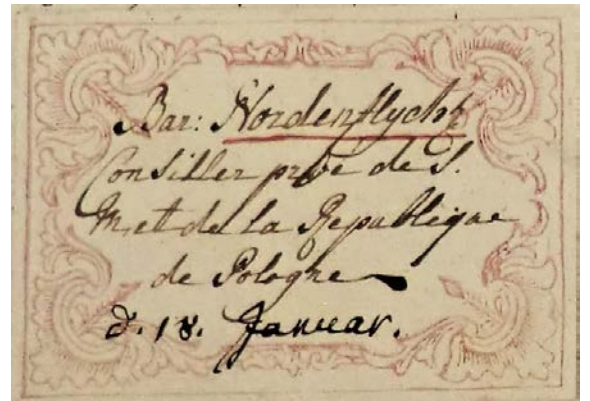 Bar: Nordenflycht
Consiller prive de S.
M. et de la Republique
de Pologne
d. 18. Januar.